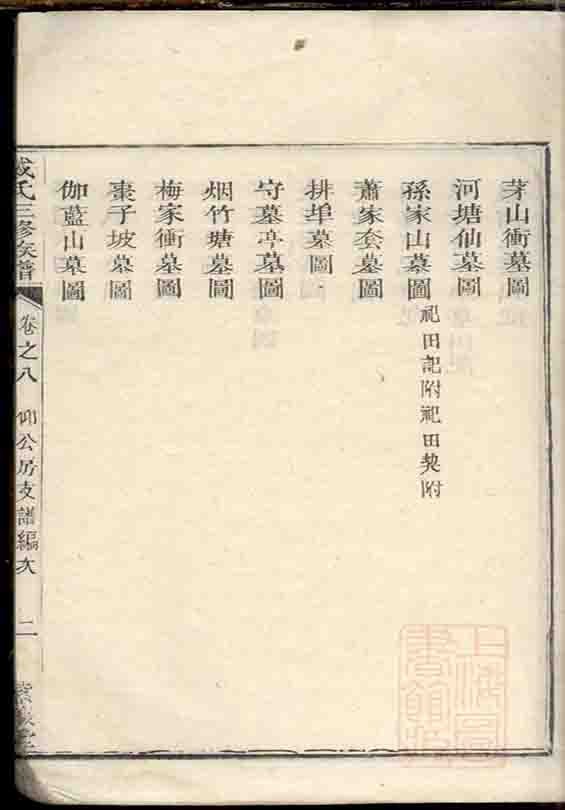 茅山衝墓圖
河塘仙墓圖
孫家山墓圖 祀田記附祀田契附
蕭家套墓圖
排單墓圖
守墓亭墓圖
烟竹塘墓圖
梅家衝墓圖
棗子坡墓圖
伽藍山墓圖
成氏三修族譜 卷之八 仰公房支譜編次 二
上海圖書館藏